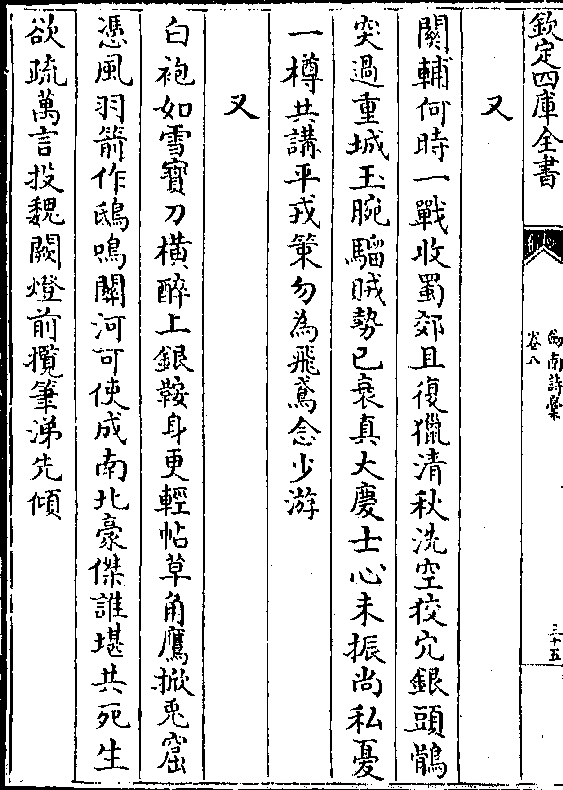 欽定四庫全書
劍南詩藁
卷八
三十五
又
關輔何時一戰收蜀郊且復獵清秋洗空狡穴銀頭鶻
突過重城玉腕騮賊勢已衰真大慶士心未振尚私憂
一樽共講平戎策勿為飛鳶念少游
又
白袍如雪寶刀橫醉上銀鞍身更輕帖草角鷹掀兎窟
憑風羽箭作鴟鳴關河可使成南北豪傑誰堪共死生
欲疏萬言投魏闕燈前攬筆涕先傾